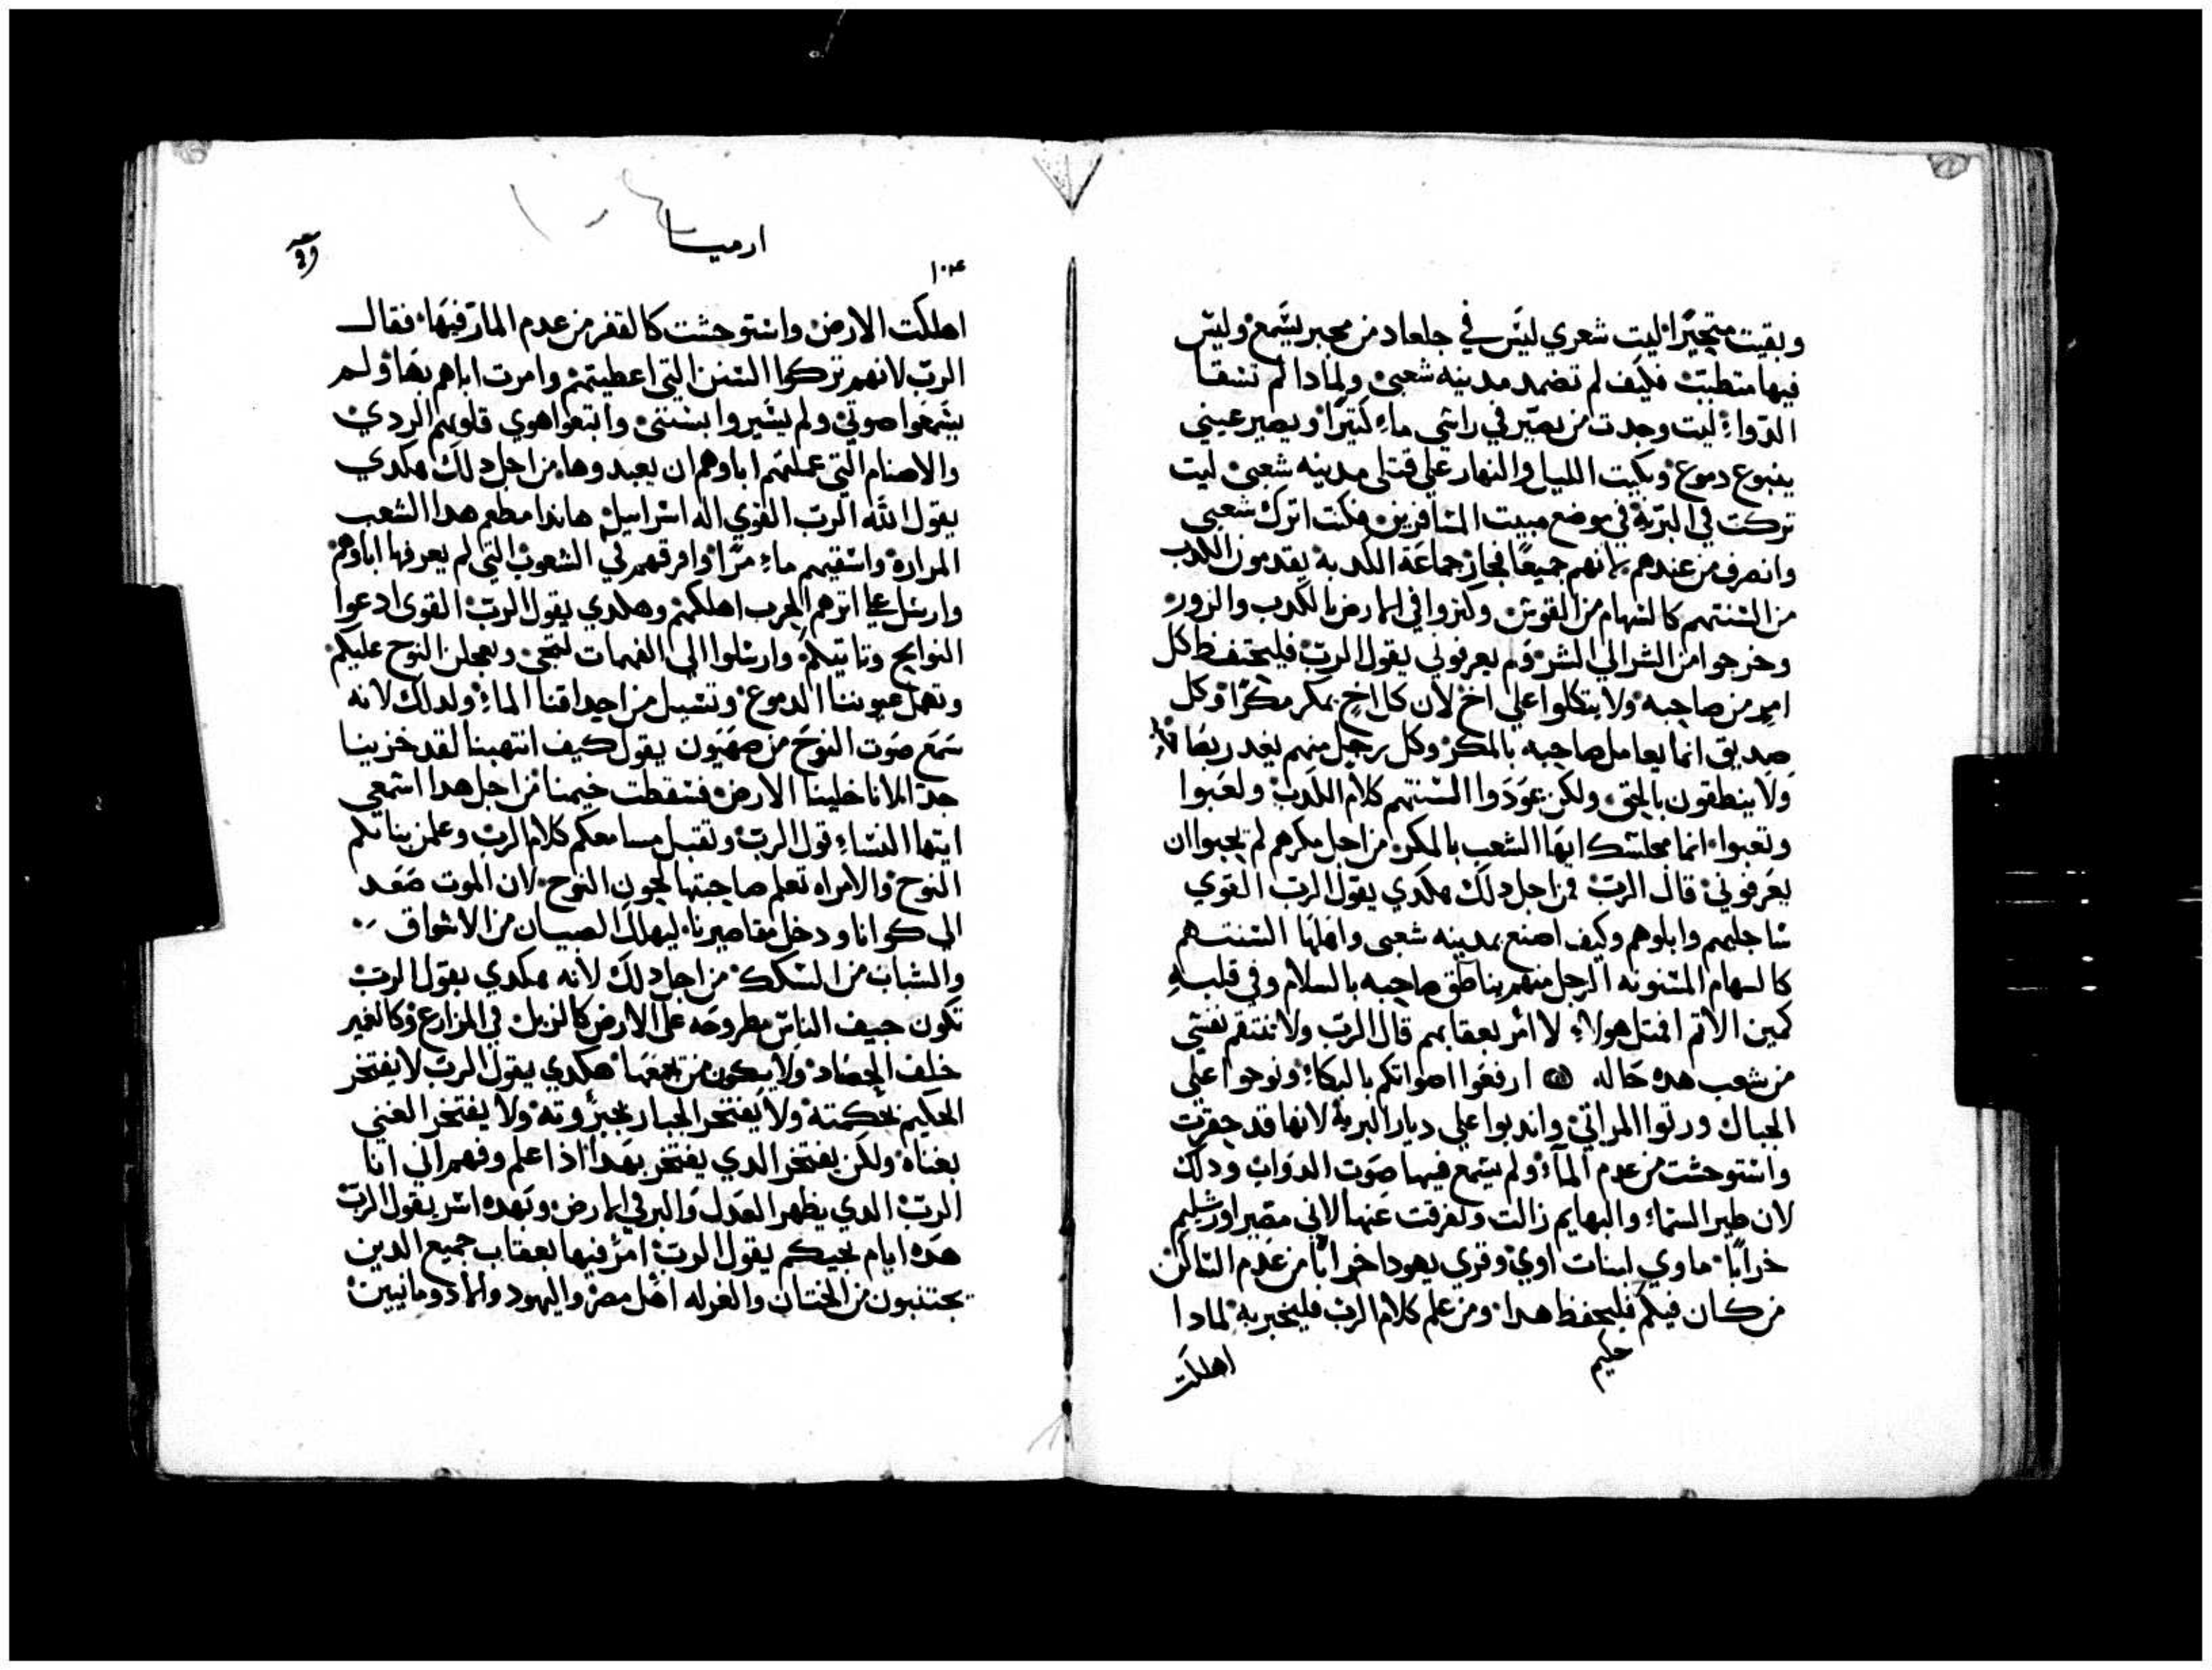 وبقيت متحيرًا ليت شعري ليس في جلعاد من مجبر يسمع وليس
فيها متطبب فكيف لم تضمد مدينه شعبي ولمادا لم تشفا
الدواء ليت وجدت من يصير في راسي ماءً كتيرًا ويصير عيني
ينبوع دموع وبكيت الليل والنهار على قتلى مدينه شعبي ليت
تركت في البرية في موضع مبيت المسافرين فكنت اترك شعبي
وانصرف من عندهم لانهم جميعًا فجار جماعة الكدبة يقدمون الكدب
من السنتهم كالسهام من القوس وكنزوا في الارض بالكدب والزور
وخرجوا من الشر الي الشر ولم يعرفوني يقول الرب فليحتفظ كل
امرٍ من صاحبه ولا يتكلوا علي اخ لان كل اخ يمكر مكرًا وكل
صديق انما يعامل صاحبه بالمكر وكل رجل منهم يغدر بصاحبه
ولا ينطقون بالحق ولكن عودوا السنتهم كلام الكدب ولعبوا
وتعبوا انما مجلسك ايها الشعب بالمكر من اجل مكرهم لم يحبوا ان
يعرفوني قال الرب من اجل دلك هكدي يقول الرب القوي
ساجليهم وابلوهم وكيف اصنع بمدينه شعبي واهلها السنتهم
كالسهام المسنونه الرجل منهم يناطق صاحبه بالسلام وفي قلبه
كمين الاتم افمتل هولاء لا امر بعقابهم قال الرب ولا تنتقم نفسي
من شعب هده حاله ارفعوا اصواتكم بالبكاء ونوحوا علي
الجبال ورتوا المراتي واندبوا علي ديار البرية لانها قد حقرت
واستوحشت من عدم المآء ولم يسمع فيها صوت الدواب ودلك
لان طير السماء والبهايم زالت وتفرقت عنها لاني مصير اورشليم
خرابًا ماوي لبنات اوي وقري يهودا خرابًا من عدم الساكن
من كان فيكم فليحفظ هدا ومن علم كلام الرب فليخبر به لمادا
حليم
اهلكت
ارميا
١٠٤
اهلكت الارض واستوحشت كالقفر من عدم المار فيها فقال
الرب لانهم تركوا السنن التي اعطيتهم وامرت اباهم بها ولم
يسمعوا صوتي ولم يسيروا بسنتي واتبعوا هوي قلوبهم الردي
والاصنام التي عملهم اباوهم ان يعبدوها من اجل دلك هكدي
يقول الله الرب القوي اله اسراييل هاندا مطعم هدا الشعب
المرارة واسقيهم ماءً مرًا وافرقهم في الشعوب التي لم يعرفها اباوهم
وارسل علي اترهم الحرب اهلكهم وهكدي يقول الرب القوي ادعوا
النوايح وتاتيكم وارسلوا الي الفهمات لتجي ويعجلن النوح عليكم
وتهمل عيوننا الدموع وتسيل من احداقنا الماء ولدلك لانه
سمع صوت النوح من صهيون يقول كيف انتهبنا لقد خزينا
جدًا لانا خلينا الارض فسقطت خيمنا من اجل هدا اسمعي
ايتها النساء قول الرب وتقبل مسامعكم كلام الرب وعلمن بناتكم
النوح والامراه تعلم صاحبتها لحون النوح لان الموت صعد
الي كوانا ودخل مقاصيرنا ليهلك الصبيان من الاسواق
والشباب من السكك من اجل دلك لانه هكدي يقول الرب
تكون جيف الناس مطروحه على الارض كالزبل في المزارع وكالغمر
خلف الحصاد ولا يكون من يجمعها هكدي يقول الرب لا يفتخر
الحكيم بحكمته ولا يفتخر الجبار بجبروته ولا يفتخر الغني
بغناه ولكن يفتخر الدي يفتخر بهدا ادا علم وفهم اني انا
الرب الدي يظهر العدل والبر في الارض وبهده اسر يقول الرب
هده ايام تجيكم يقول الرب امر فيها بعقاب جميع الدين
يجتنبون من الختان والغرله اهل مصر واليهود والادومانيين